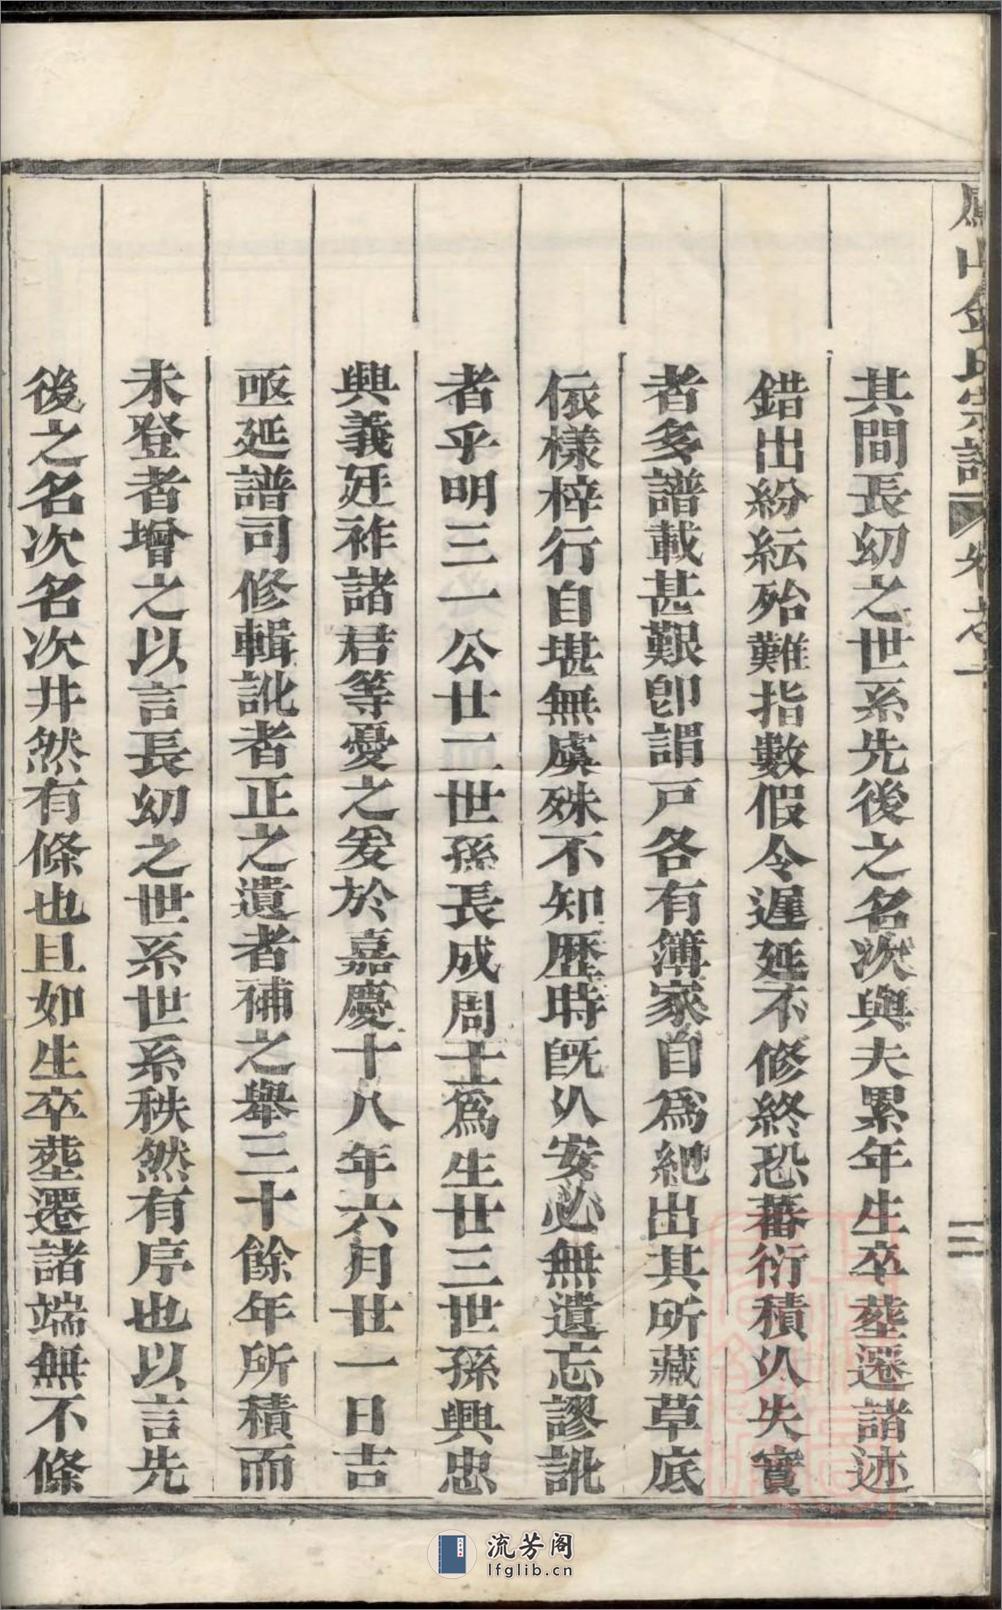 鳳山金氏宗譜 卷之一 二
其間長幼之世系先後之名次與夫累年生卒塟遷諸迹
錯出紛紜殆難指數假令遲延不修終恐蕃衍積久失實
者多譜載甚艱卽謂戸各有簿家自爲紀出其所藏草底
依樣梓行自堪無虞殊不知歴時旣久安必無遺忘謬訛
者乎明三一公廿二世孫長成周士爲生廿三世孫興忠
興義廷祚諸君等憂之爰於嘉慶十八年六月廿一日吉
亟延譜司修輯訛者正之遺者補之舉三十餘年所積而
未登者增之以言長幼之世系世系秩然有序也以言先
後之名次名次井然有條也且如生卒塟遷諸端無不條
流芳阁
lfglib.cn